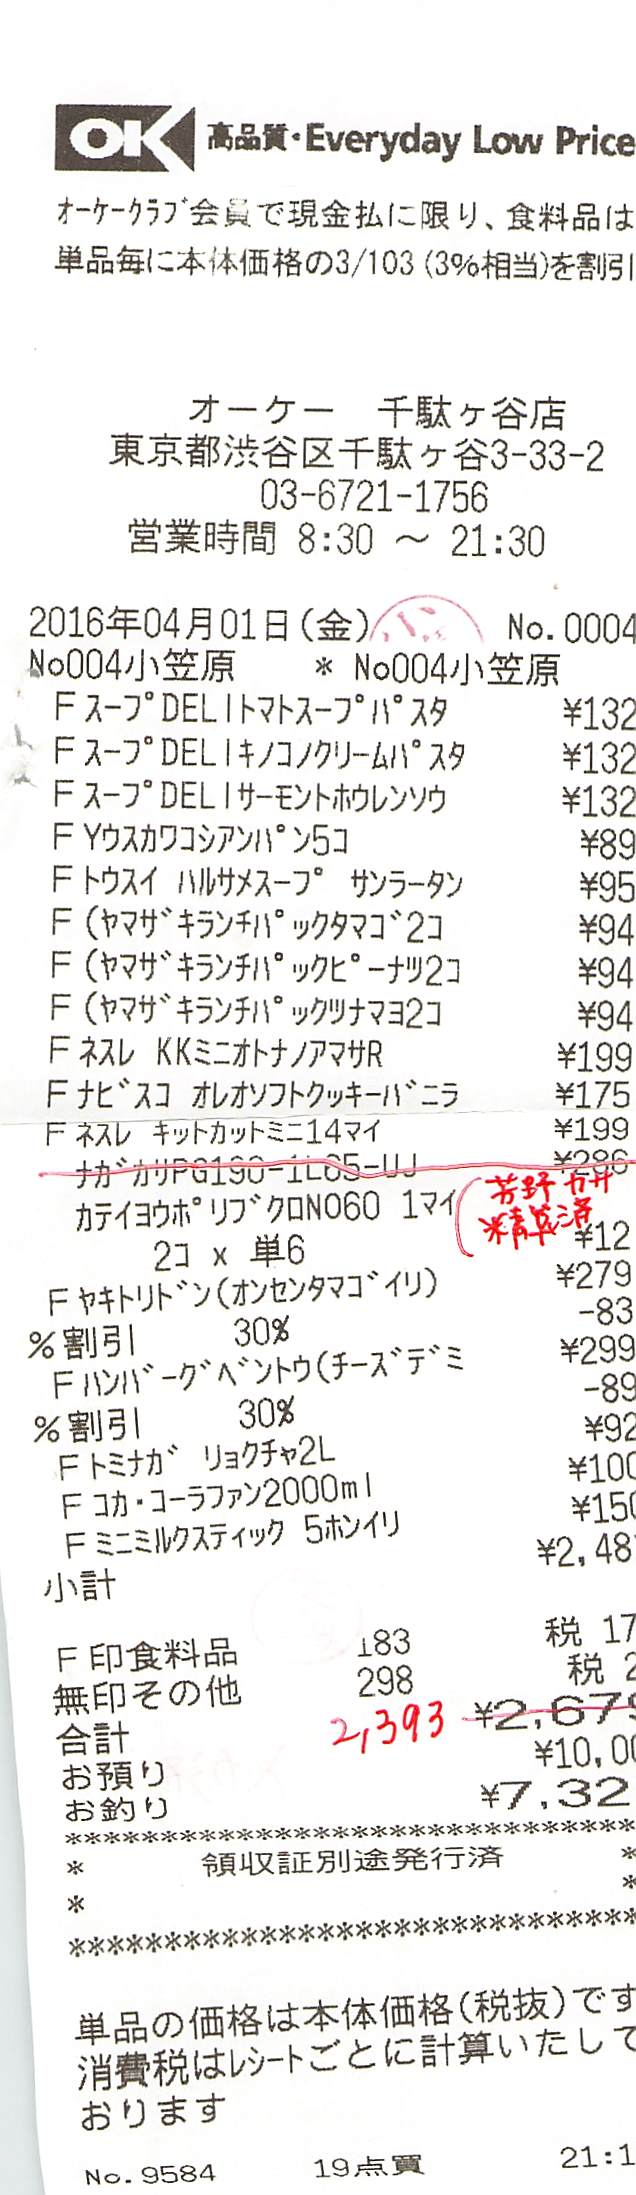 OK 高品質・Everyday Low Price
オーケークラブ会員で現金払に限り、食料品は
単品毎に本体価格の3/103(3%相当)を割引
オーケー 千駄ヶ谷店
東京都渋谷区千駄ヶ谷3-33-2
03-6721-1756
営業時間 8:30 ～ 21:30
2016年04月01日(金) No.0004
No004小笠原 * No004小笠原
F スープDELIトマトスープパスタ ¥132
F スープDELIキノコノクリームパスタ ¥132
F スープDELIサーモントホウレンソウ ¥132
F Yウスカワコシアンパン5コ ¥89
F トウスイ ハルサメスープ サンラータン ¥95
F (ヤマザキランチパックタマゴ2コ ¥94
F (ヤマザキランチパックピーナツ2コ ¥94
F (ヤマザキランチパックツナマヨ2コ ¥94
F ネスレ KKミニオトナノアマサR ¥199
F ナビスコ オレオソフトクッキーバニラ ¥175
F ネスレ キットカットミニ14マイ ¥199
ナガカサPG190-1L65-UJ ¥286
芳野 カサ
精算済
カテイヨウポリブクロNO60 1マイ
2コ x 単6 ¥12
F ヤキトリドン(オンセンタマゴイリ) ¥279
%割引 30% -83
F ハンバーグベントウ(チーズデミ ¥299
%割引 30% -89
F トミナガ リョクチャ2L ¥92
F コカ・コーラファン2000ml ¥100
F ミニミルクスティック 5ホンイリ ¥150
小計 ¥2,48
F 印食料品 183 税 17
無印その他 298 税 2
合計 2,393 ¥2,679
お預り ¥10,00
お釣り ¥7,32
*******************************
* 領収証別途発行済 *
* *
*******************************
単品の価格は本体価格(税抜)です
消費税はレシートごとに計算いたして
おります
No.9584 19点買 21:1